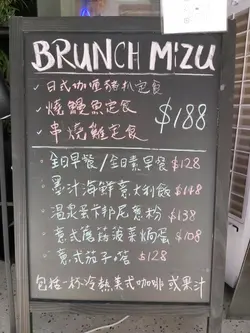 BRUNCH MIZU
✓ 日式咖喱豬扒定食
✓ 燒鰻魚定食
✓ 串燒雞定食
$188
全日早餐/全日素早餐 $128
墨汁海鮮意大利飯 $148
溫泉蛋卡邦尼意粉 $138
意式蘑菇菠菜焗蛋 $108
意式茄子 $128
包括一杯冷熱美式咖啡 或果汁